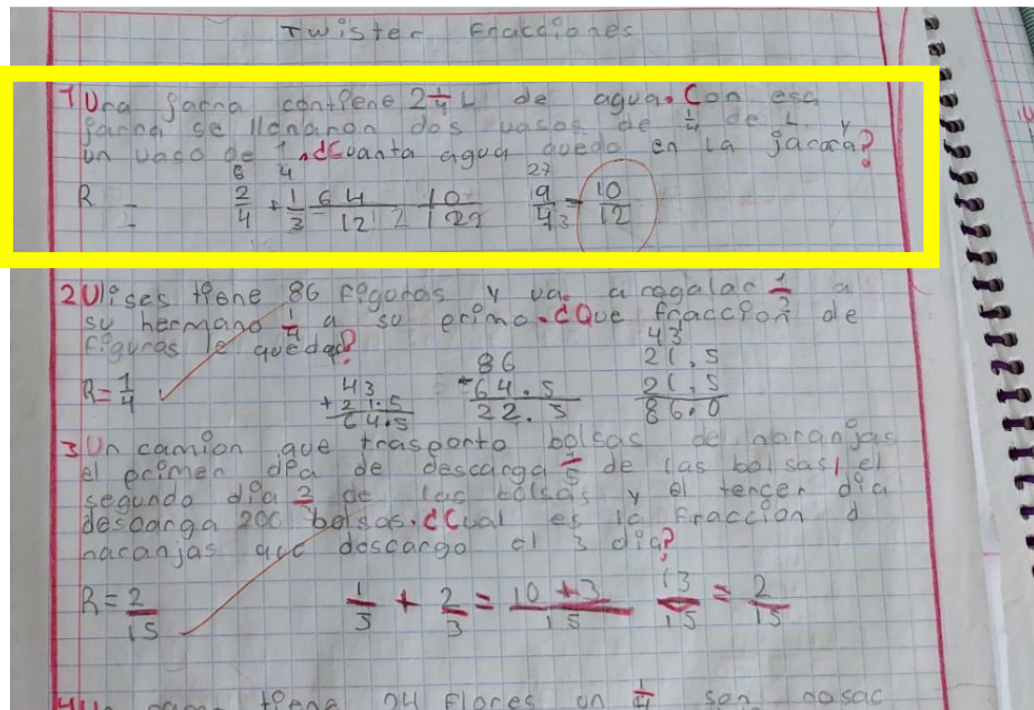 Twister Fracciones
1 Una jarra contiene 2 1/4 L de agua. Con esa
jarra se llenaron dos vasos de 1/4 de L y
un vaso de 1 ¿Cuanta agua quedo en la jarra?
R = 2/4 + 1/3 = 6 4 / 12 10 9/4 - 10/12
27
2 Ulises tiene 86 figuras y va a regalar 1/2 a
su hermano 1/4 a su primo. ¿Que fraccion de
figuras le quedan?
R = 1/4
43
+ 21.5
64.5
86
- 64.5
22.5
43
21,5
21,5
86.0
3 Un camion que trasporto bolsas de naranjas
el primer dia de descarga 1/5 de las bolsas, el
segundo dia 2/3 de las bolsas y el tercer dia
descarga 200 bolsas. ¿Cual es la fraccion d
naranjas que descargo el 3 dia?
R = 2/15 1/5 + 2/3 = 10 + 3 / 15 13/15 = 2/15
tiene 24 flores un 1/4 son rosas